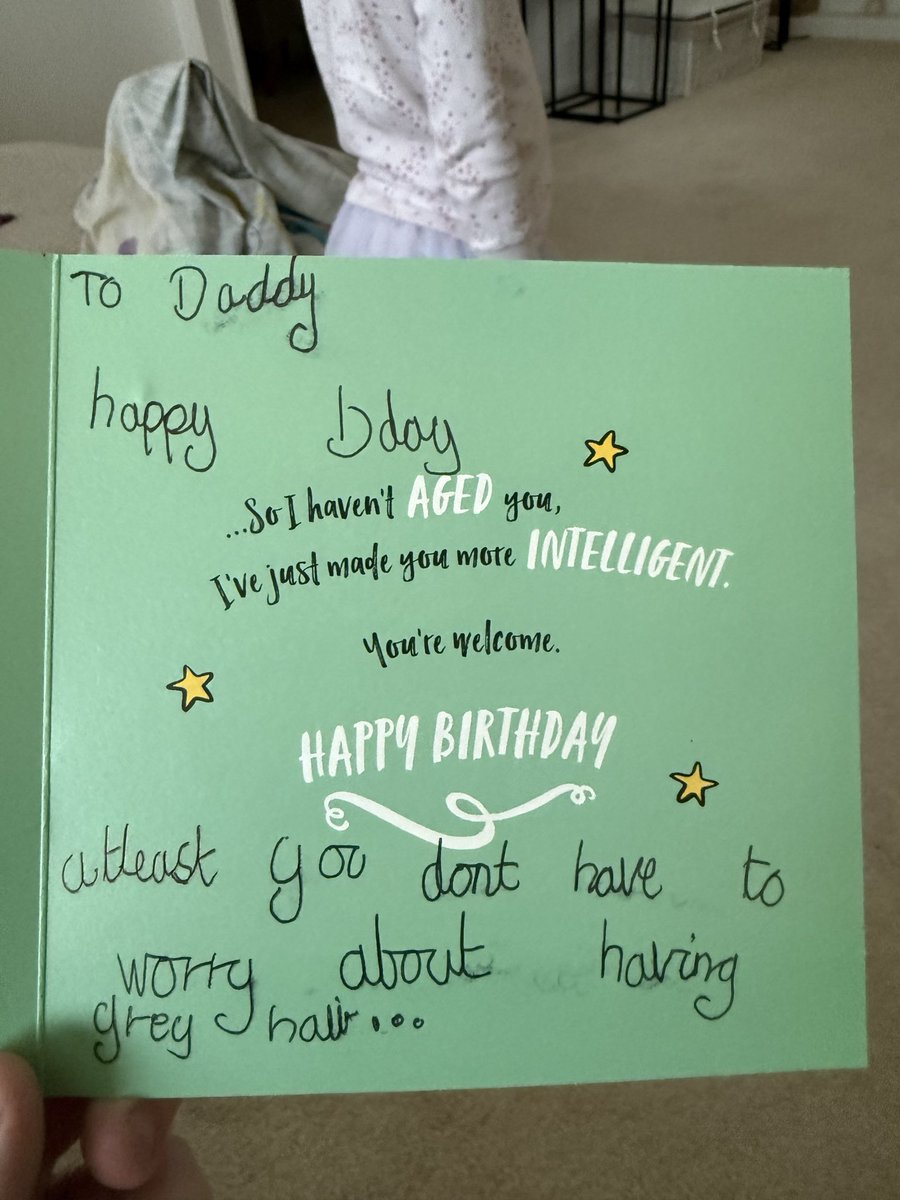 TO Daddy
happy bday
...So I haven't AGED you,
I've just made you more INTELLIGENT.
You're welcome.
HAPPY BIRTHDAY
atleast you dont have to
worry about having
grey hair...